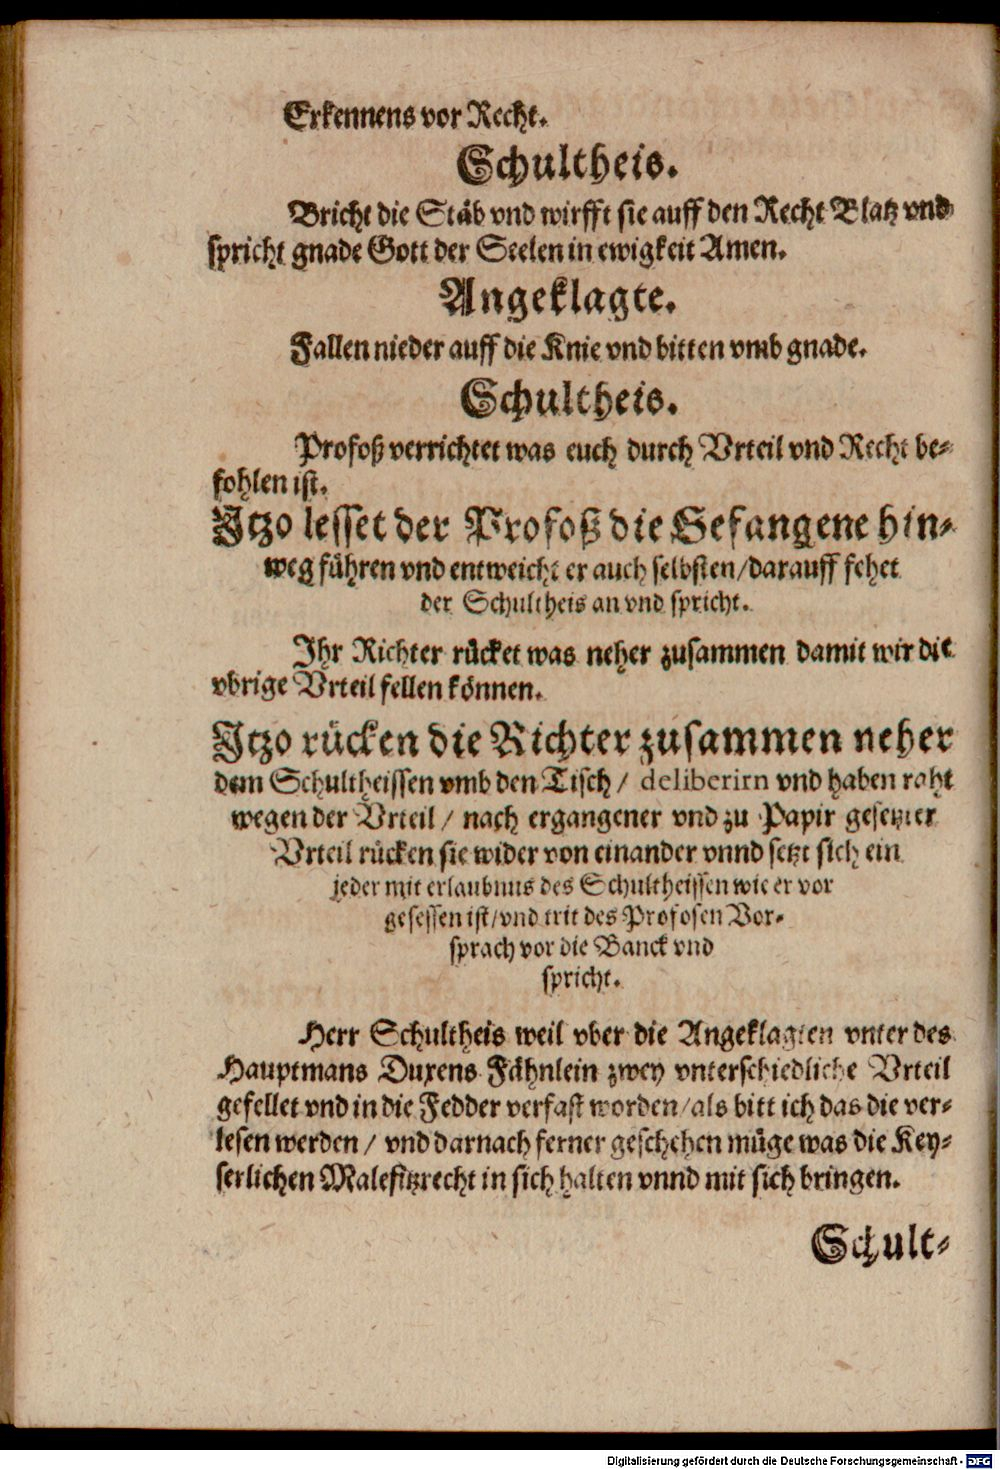 Erkennens vor Recht.
Schultheis.
Bricht die Stäb vnd wirfft sie auff den Recht Platz vnd
spricht gnade Gott der Seelen in ewigkeit Amen.
Angeklagte.
Fallen nieder auff die Knie vnd bitten vmb gnade.
Schultheis.
Profoß verrichtet was euch durch Vrteil vnd Recht be-
fohlen ist.
Itzo lesset der Profoß die Gefangene hin-
weg führen vnd entweicht er auch selbsten/darauff fehet
der Schultheis an vnd spricht.
Ihr Richter rücket was neher zusammen damit wir die
vbrige Vrteil fellen können.
Itzo rücken die Richter zusammen neher
dem Schultheissen vmb den Tisch / deliberirn vnd haben raht
wegen der Vrteil / nach ergangener vnd zu Papir gesetzter
Vrteil rücken sie wider von einander vnnd setzt sich ein
jeder mit erlaubnus des Schultheissen wie er vor
gesessen ist/vnd trit des Profosen Vor-
sprach vor die Banck vnd
spricht.
Herr Schultheis weil vber die Angeklagten vnter des
Hauptmans Duxens Fähnlein zwey vnterschiedliche Vrteil
gefellet vnd in die Fedder verfast worden/als bitt ich das die ver-
lesen werden / vnd darnach ferner geschehen müge was die Key-
serlichen Malefitzrecht in sich halten vnnd mit sich bringen.
Schult-
Digitalisierung gefördert durch die Deutsche Forschungsgemeinschaft - DFG